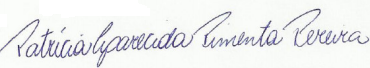 Patrícia Aparecida Pimenta Pereira